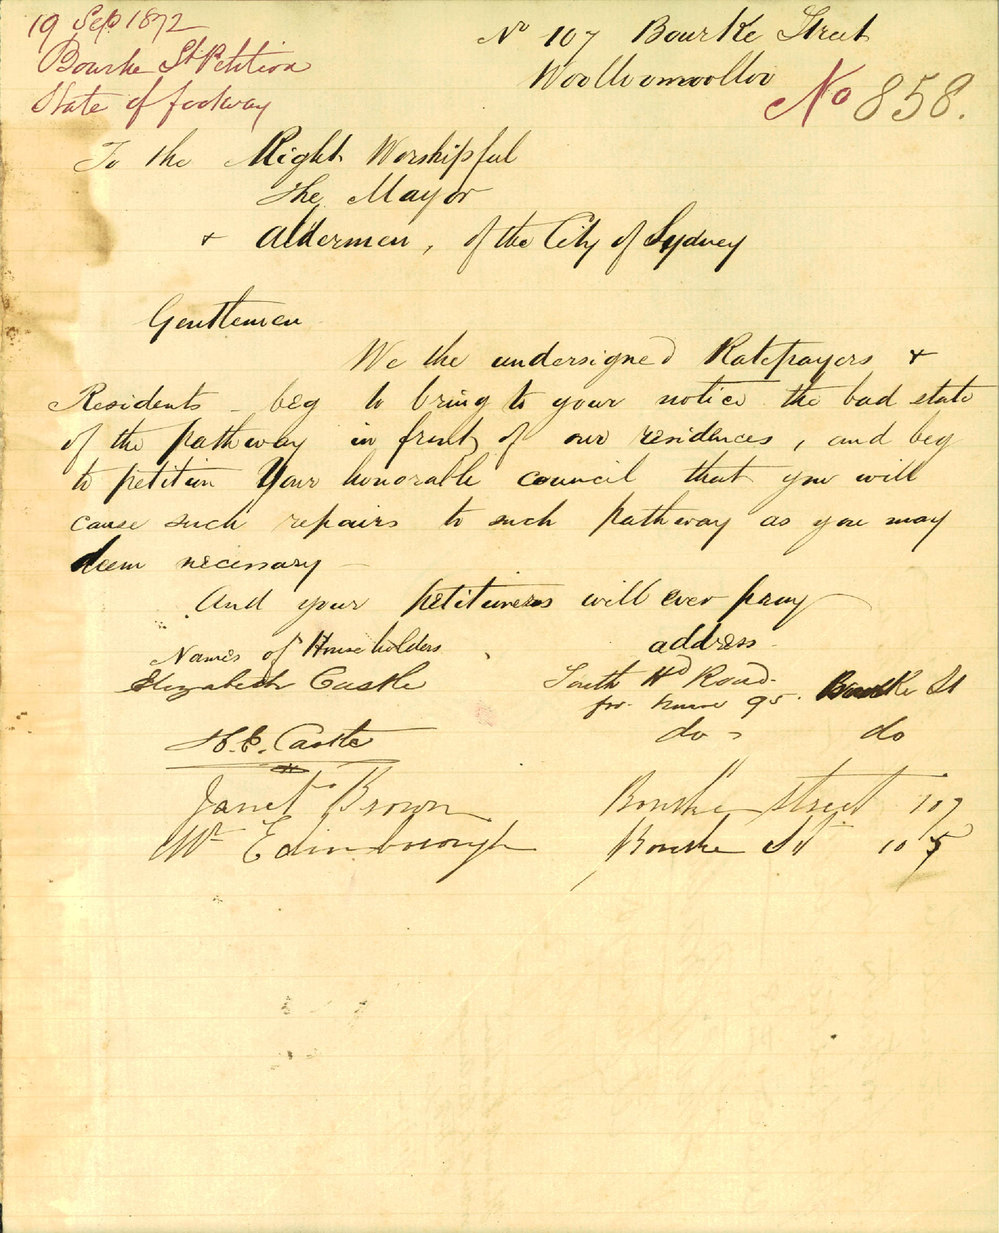 19 Sep 1872
Bourke St Petition
State of footway
No 107 Bourke Street
Woolloomoolloo
No 858.
To the Right Worshipful
The Mayor
+ Aldermen, of the City of Sydney
Gentlemen
We the undersigned Ratepayers +
Residents - beg to bring to your notice the bad state
of the pathway in front of our residences, and beg
to petition Your honorable council that you will
cause such repairs to such pathway as you may
deem necessary -
And your petitioners will ever pray
Names of Householders address
Elizabeth Castle South Hd Road.
for house 95. Bourke St
H.E. Castle do do
Janet Brown Bourke Street 107
Wm Edinborough Bourke St 105